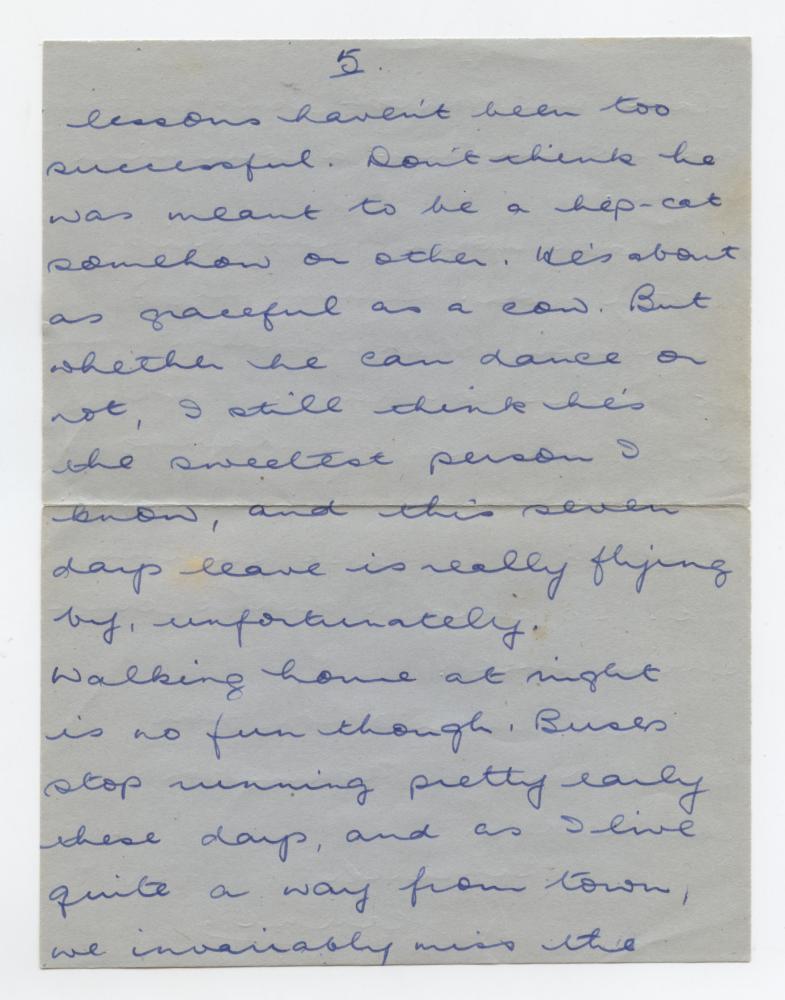 5.
lessons haven't been too
successful. Don't think he
was meant to be a hep-cat
somehow or other. He's about
as graceful as a cow. But
whether he can dance or
not, I still think he's
the sweetest person I
know, and this seven
days leave is really flying
by, unfortunately.
Walking home at night
is no fun though. Buses
stop running pretty early
these days, and as I live
quite a way from town,
we invariably miss the